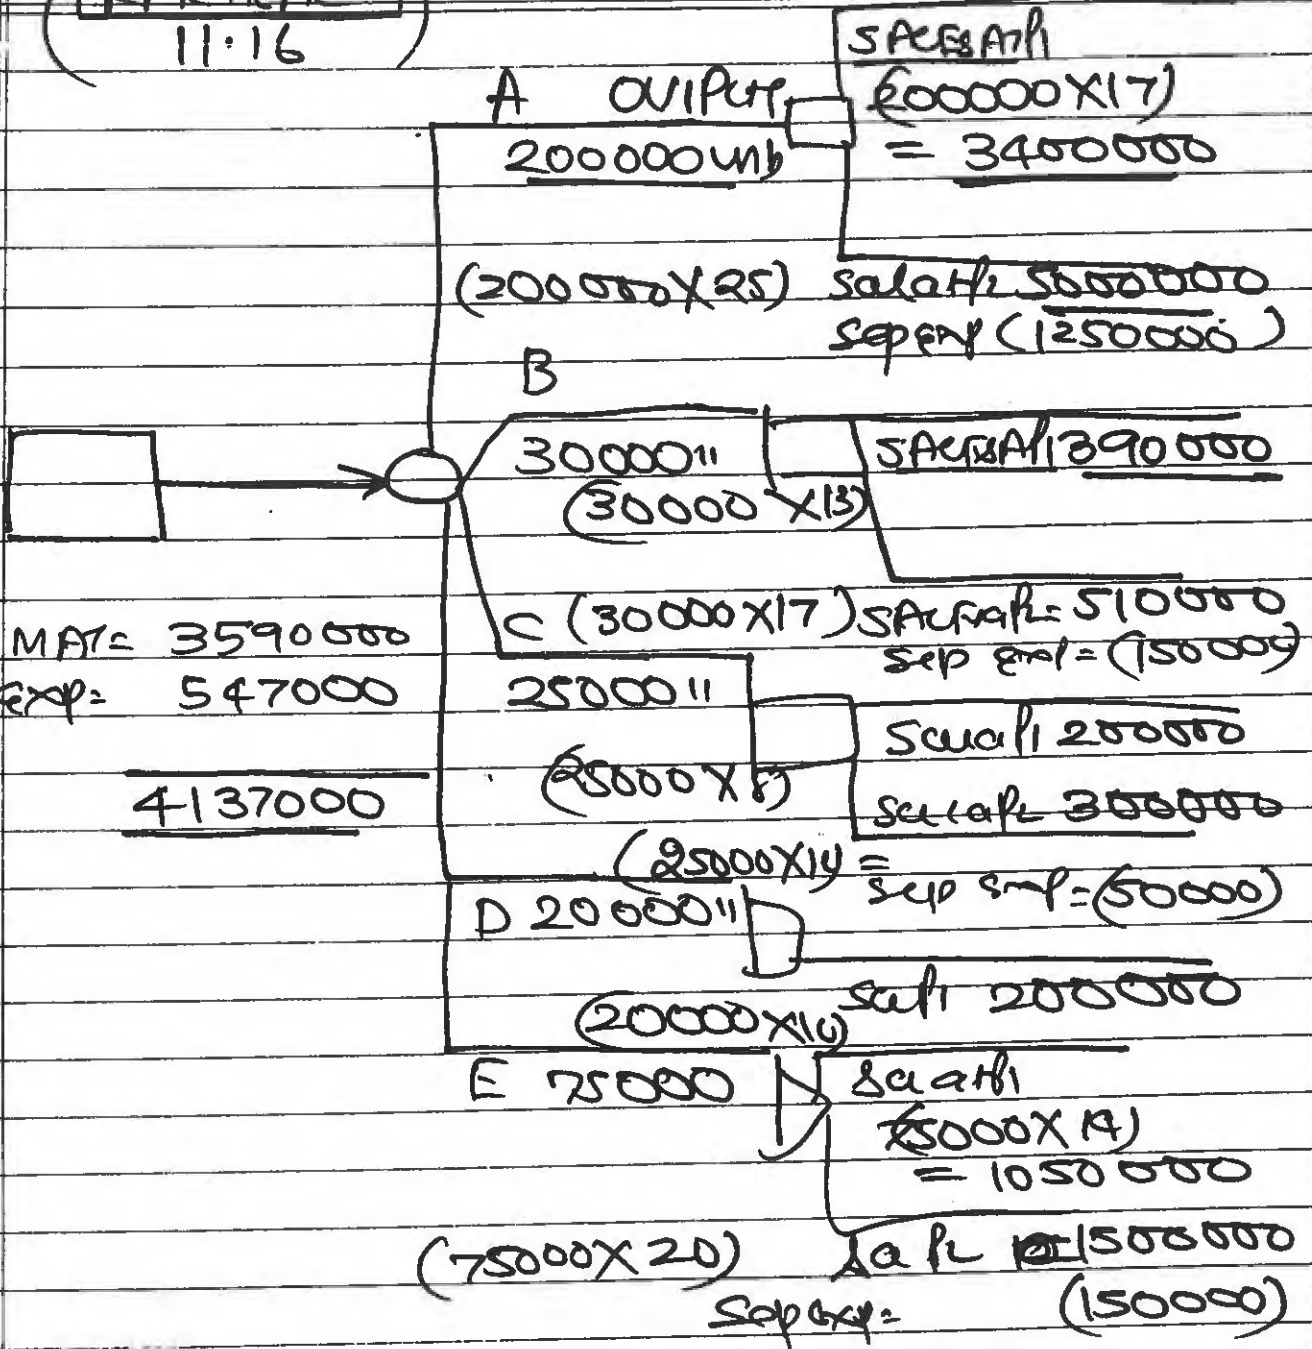 11.16
A OUTPUT
200000 units
SALES AT P1
(200000X17)
= 3400000
(200000X25) Sal at P2 5000000
Sep exp (1250000)
B
30000 "
(30000 X13)
SALES AT P1 390000
C (30000X17) SALES at P2 = 510000
Sep exp = (150000)
MAT = 3590000
EXP = 547000
4137000
25000 "
(25000 X 8)
Sal at P1 200000
Sal at P2 300000
(25000X14) =
Sep exp = (50000)
D 20000 "
Sal P1 200000
(20000X10)
E 75000
Sal at P1
75000X14)
= 1050000
(75000X20) Sa P2 1500000
Sep exp = (150000)